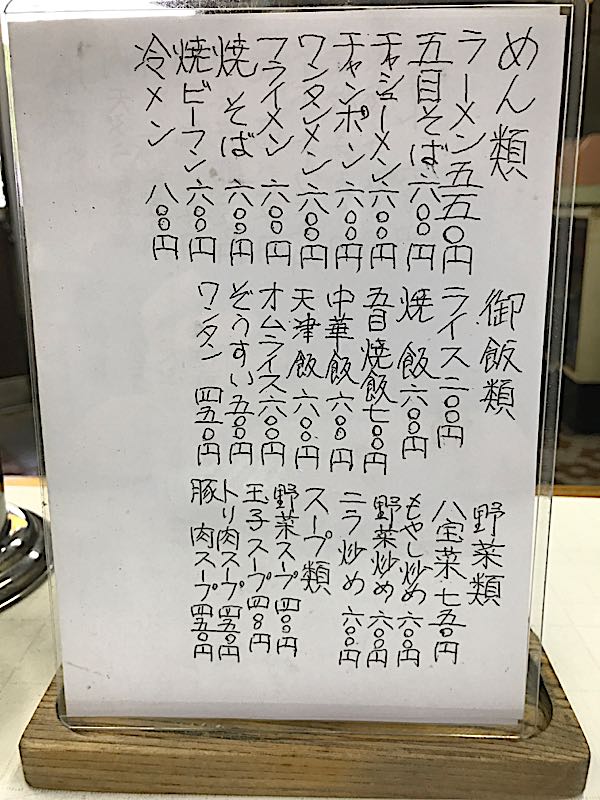 めん類
ラーメン五五〇円
五目そば六〇〇円
チャシューメン六〇〇円
チャンポン六〇〇円
ワンタンメン六〇〇円
フライメン六〇〇円
焼そば六〇〇円
焼ビーフン六〇〇円
冷メン八〇〇円
御飯類
ライス二〇〇円
焼飯六〇〇円
五目焼飯七〇〇円
中華飯六〇〇円
天津飯六〇〇円
オムライス六〇〇円
ぞうすい五〇〇円
ワンタン四五〇円
野菜類
八宝菜七五〇円
もやし炒め六〇〇円
野菜炒め六〇〇円
ニラ炒め六〇〇円
スープ類
野菜スープ四〇〇円
玉子スープ四〇〇円
トリ肉スープ四五〇円
豚肉スープ四五〇円